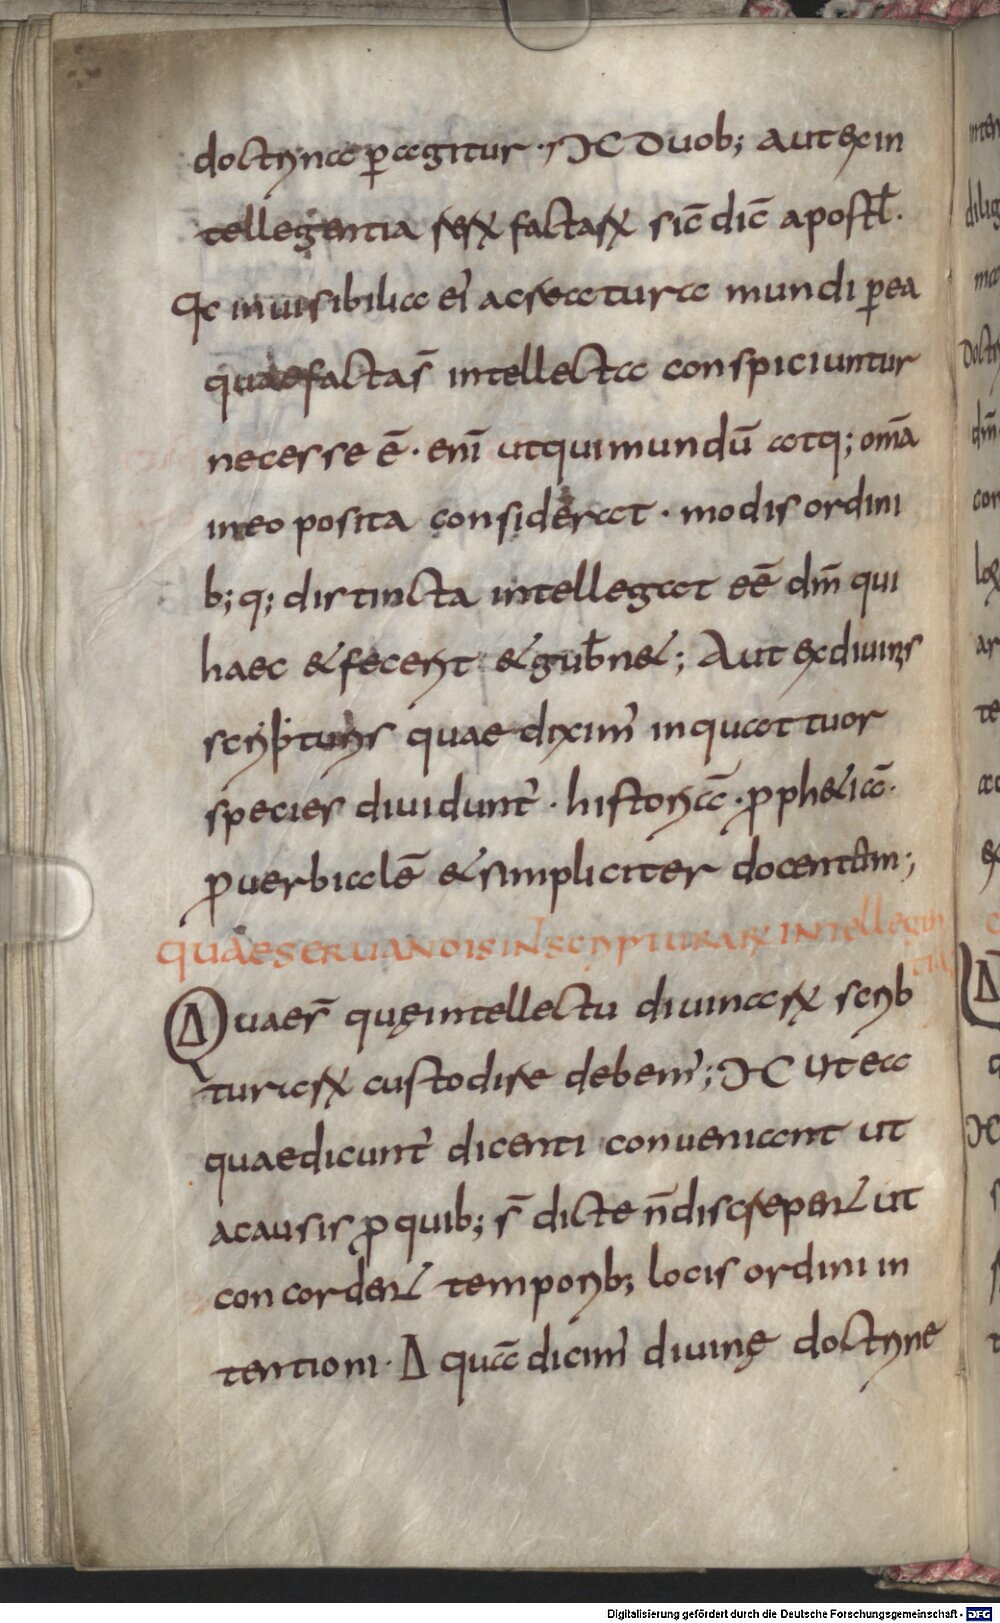 doctrina peragitur · M͞C Duob; aut ex in
tellegentia rerum factarum sic̄ dic̄ apostl̄.
Qc inuisibilia ei acreatura mundi p̱ ea
quae facta s̄ intellecta conspiciuntur
necesse ē · eni utqui mundū atq; om̄a
ineo posita considerat · modis ordini
b; q; distincta intellegat eē dm̄ qui
haec & fecerit & gub̄n&; Aut ex diuinis
scripturis quae dixim' in quattuor
species diuidunt' · historicā · p̱ph&icā·
p̱uerbialē & simpliciter docentem;
QUAE SERUANDIS IN SCRIPTURARUM INTELLEGEN
TIA
Δ Quae s̄ quę intellectu diuinarum scrib
turarum custodire debem'; M Ut ea
quae dicunt' dicenti conueniant ut
acausis p̱ quib; s̄ dicte n̄ discrepent ut
concordent temporib; locis ordini in
tentioni · Δ quā dicim' diuinę doctrine
inten
dilig
ma
Doctr
dm̄
con
log
ar
te